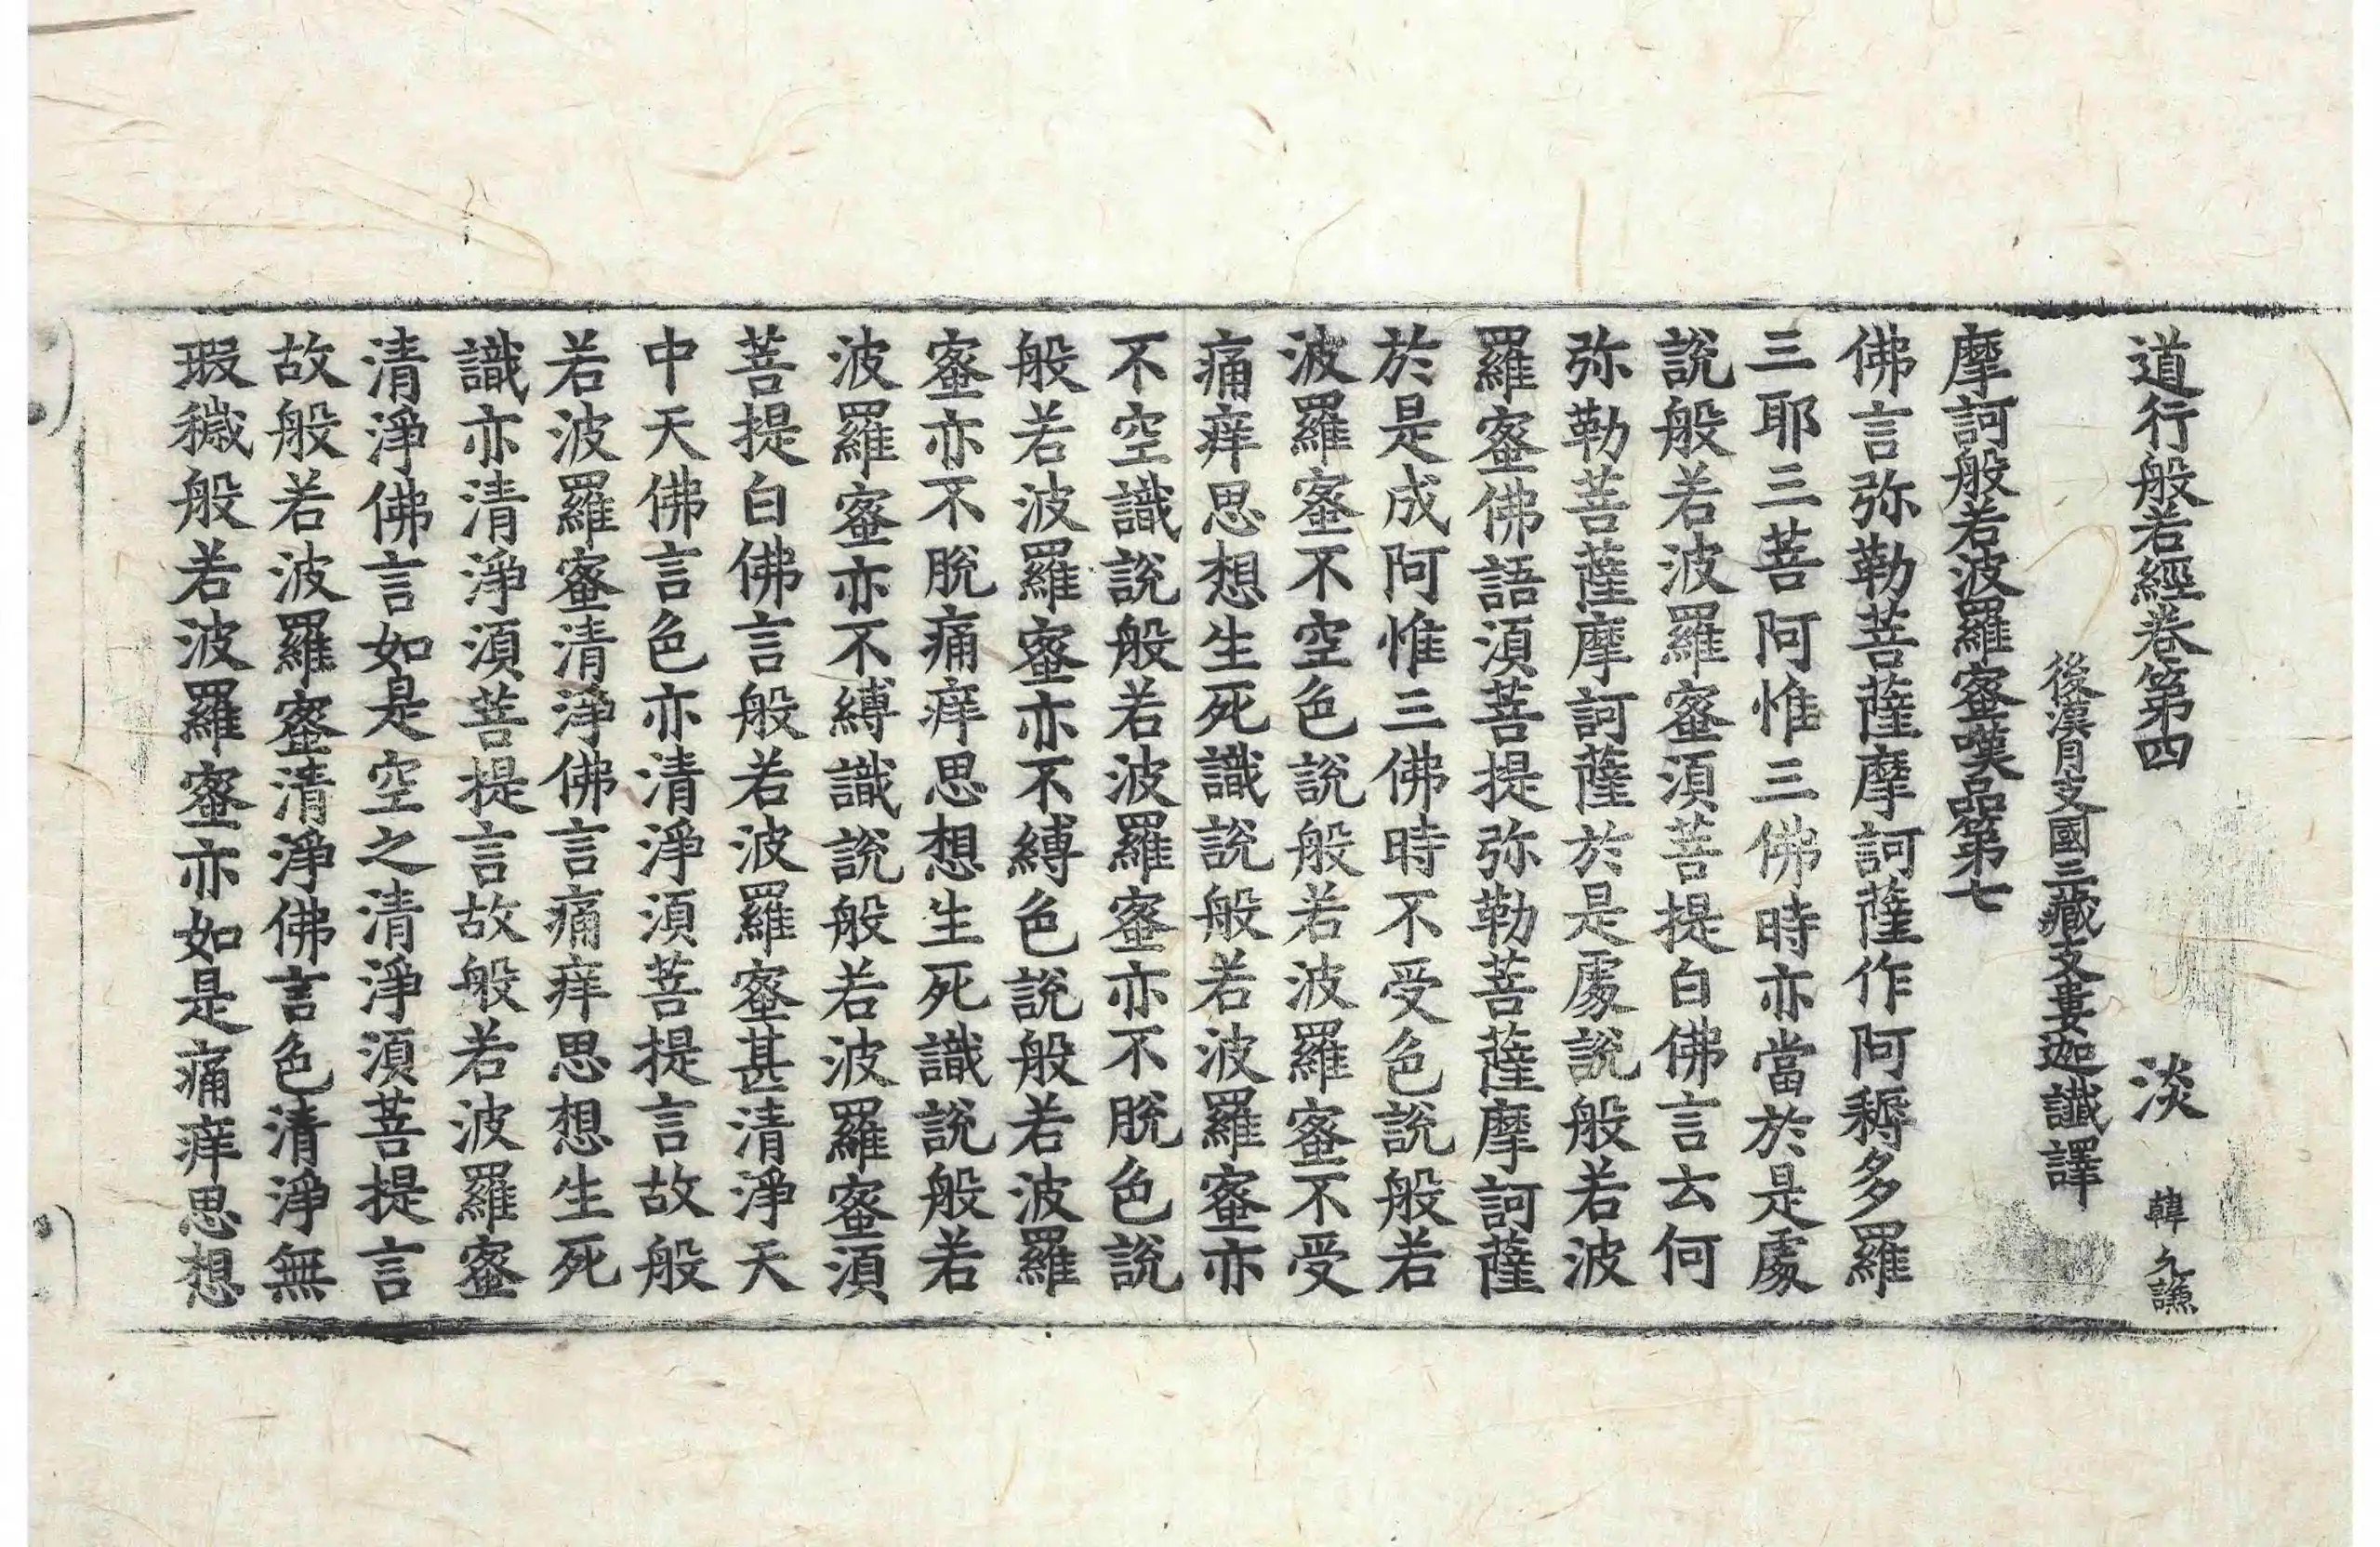 道行般若經卷第四　淡　韓允讌
後漢月支國三藏支婁迦讖譯
摩訶般若波羅蜜嘆品第七
佛言弥勒菩薩摩訶薩作阿耨多羅
三耶三菩阿惟三佛時亦當於是處
說般若波羅蜜須菩提白佛言云何
弥勒菩薩摩訶薩於是處說般若波
羅蜜佛語須菩提弥勒菩薩摩訶薩
於是成阿惟三佛時不受色說般若
波羅蜜不空色說般若波羅蜜不受
痛痒思想生死識說般若波羅蜜亦
不空識說般若波羅蜜亦不脫色說
般若波羅蜜亦不縛色說般若波羅
蜜亦不脫痛痒思想生死識說般若
波羅蜜亦不縛識說般若波羅蜜須
菩提白佛言般若波羅蜜甚清淨天
中天佛言色亦清淨須菩提言故般
若波羅蜜清淨佛言痛痒思想生死
識亦清淨須菩提言故般若波羅蜜
清淨佛言如是空之清淨須菩提言
故般若波羅蜜清淨佛言色清淨無
瑕穢般若波羅蜜亦如是痛痒思想